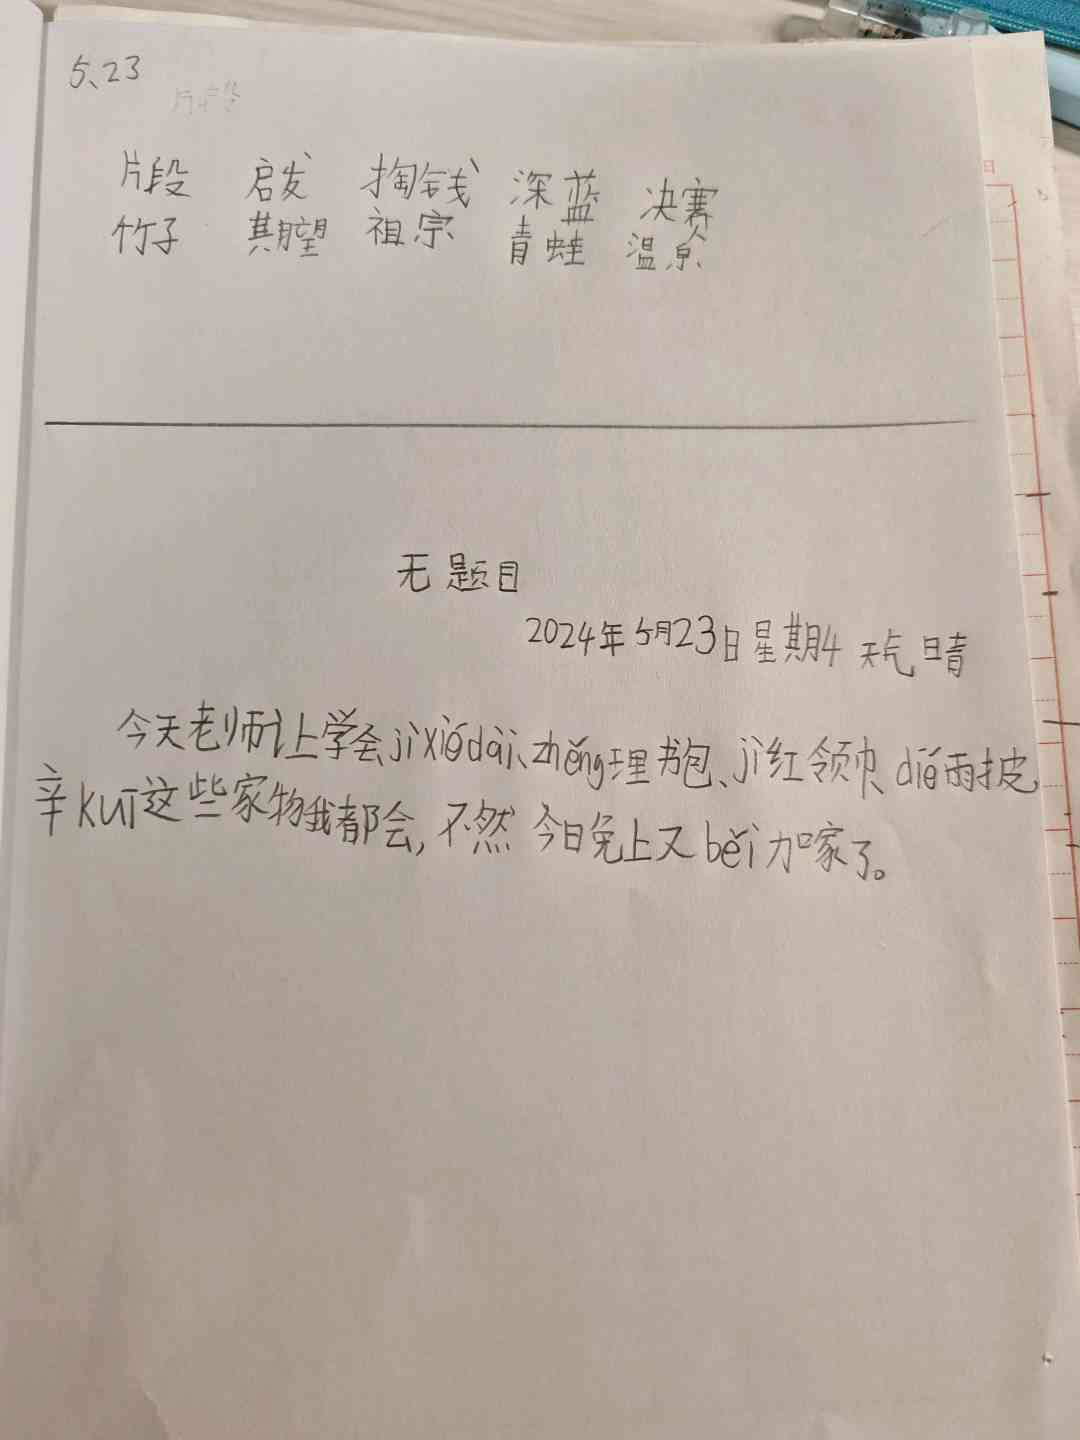 5、23
片段 启发 掏钱 深蓝 决赛
竹子 期望 祖宗 青蛙 温泉
无题目
2024年5月23日星期4 天气日青
今天老师让上学会jìxiédài、zhěng理书包、jì红领巾、dié雨披,
辛kuī这些家物我都会,不然今日免上又bèi加嗓了。